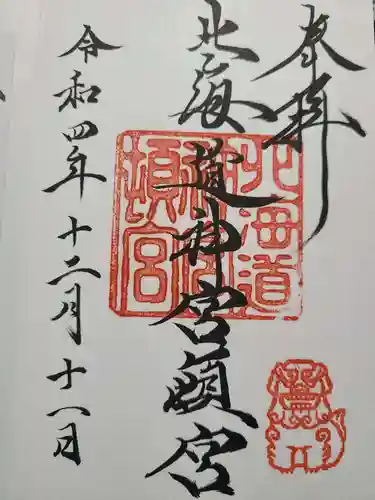 奉拝
北海道神宮頓宮
北海道
神宮
頓宮
令和四年十二月十八日